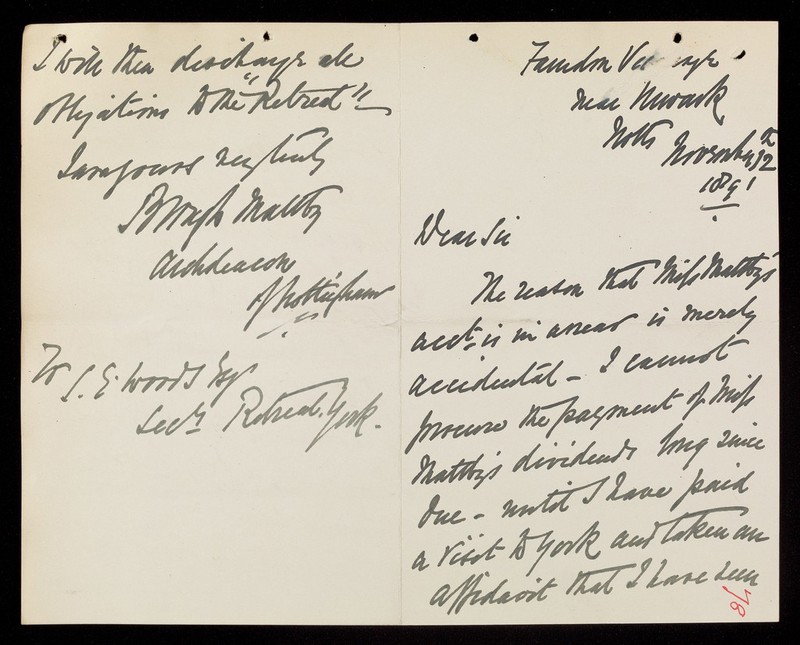 Farndon Vicarage
near Newark
Notts November 12th
1891
Dear Sir
The reason that Miss Maltby's
acct. is in arrear is merely
accidental - I cannot
procure the payment of Miss
Maltby's dividends long since
due - until I have paid
a visit to York and taken an
affidavit that I have seen
78
I will then discharge all
obligations to the "Retreat"
I am yours
Maltby
Archdeacon
of Nottingham
To S. E. Woods Esqr
Secy Retreat. York.